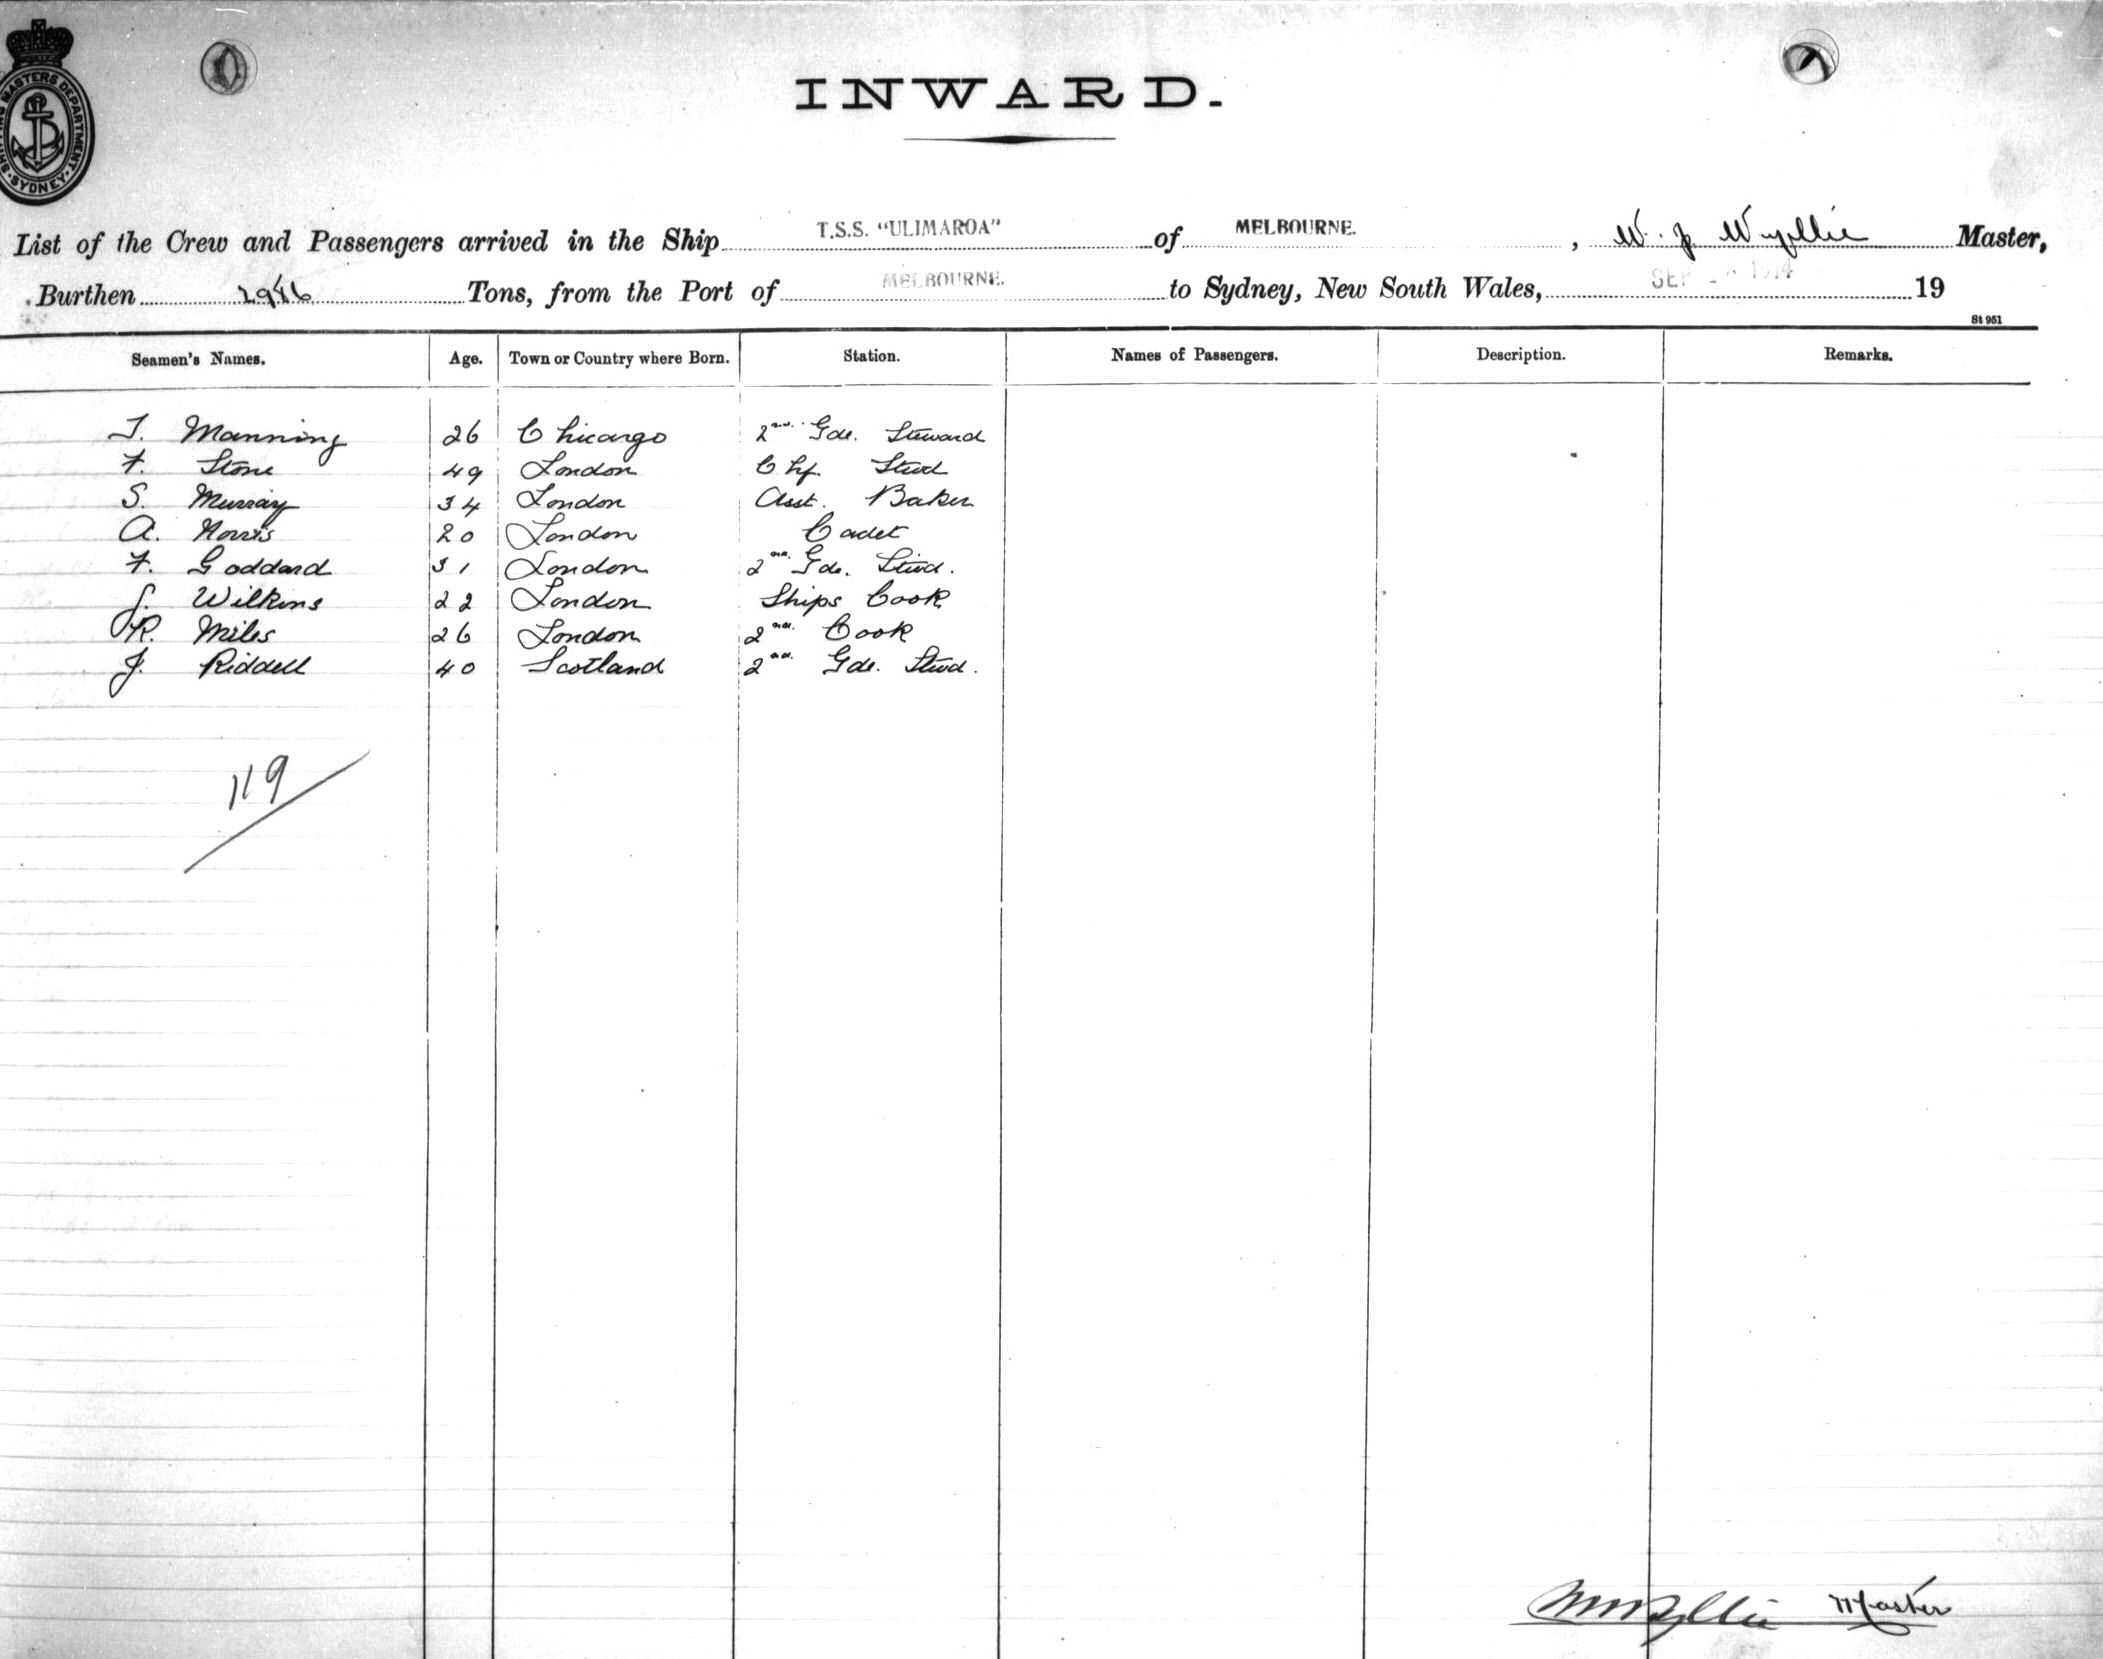 SHIPPING MASTERS DEPARTMENT · SYDNEY ·
INWARD.
List of the Crew and Passengers arrived in the Ship T.S.S. "ULIMAROA" of MELBOURNE. , W. J. Wyllie Master,
Burthen Tons, from the Port of MELBOURNE. to Sydney, New South Wales, SEP 1914 19
St 951
Seamen's Names. Age. Town or Country where Born. Station. Names of Passengers. Description. Remarks.
T. Manning 26 Chicargo 2nd Gde. Steward
F. Stone 49 London Chf. Stwd
S. Murray 34 London Asst. Baker
A. Norris 20 London Cadet
F. Goddard 31 London 2nd Gde. Stwd.
J. Wilkins 22 London Ships Cook
R. Miles 26 London 2nd Cook
J. Riddell 40 Scotland 2nd Gde. Stwd.
119
WJWyllie Master